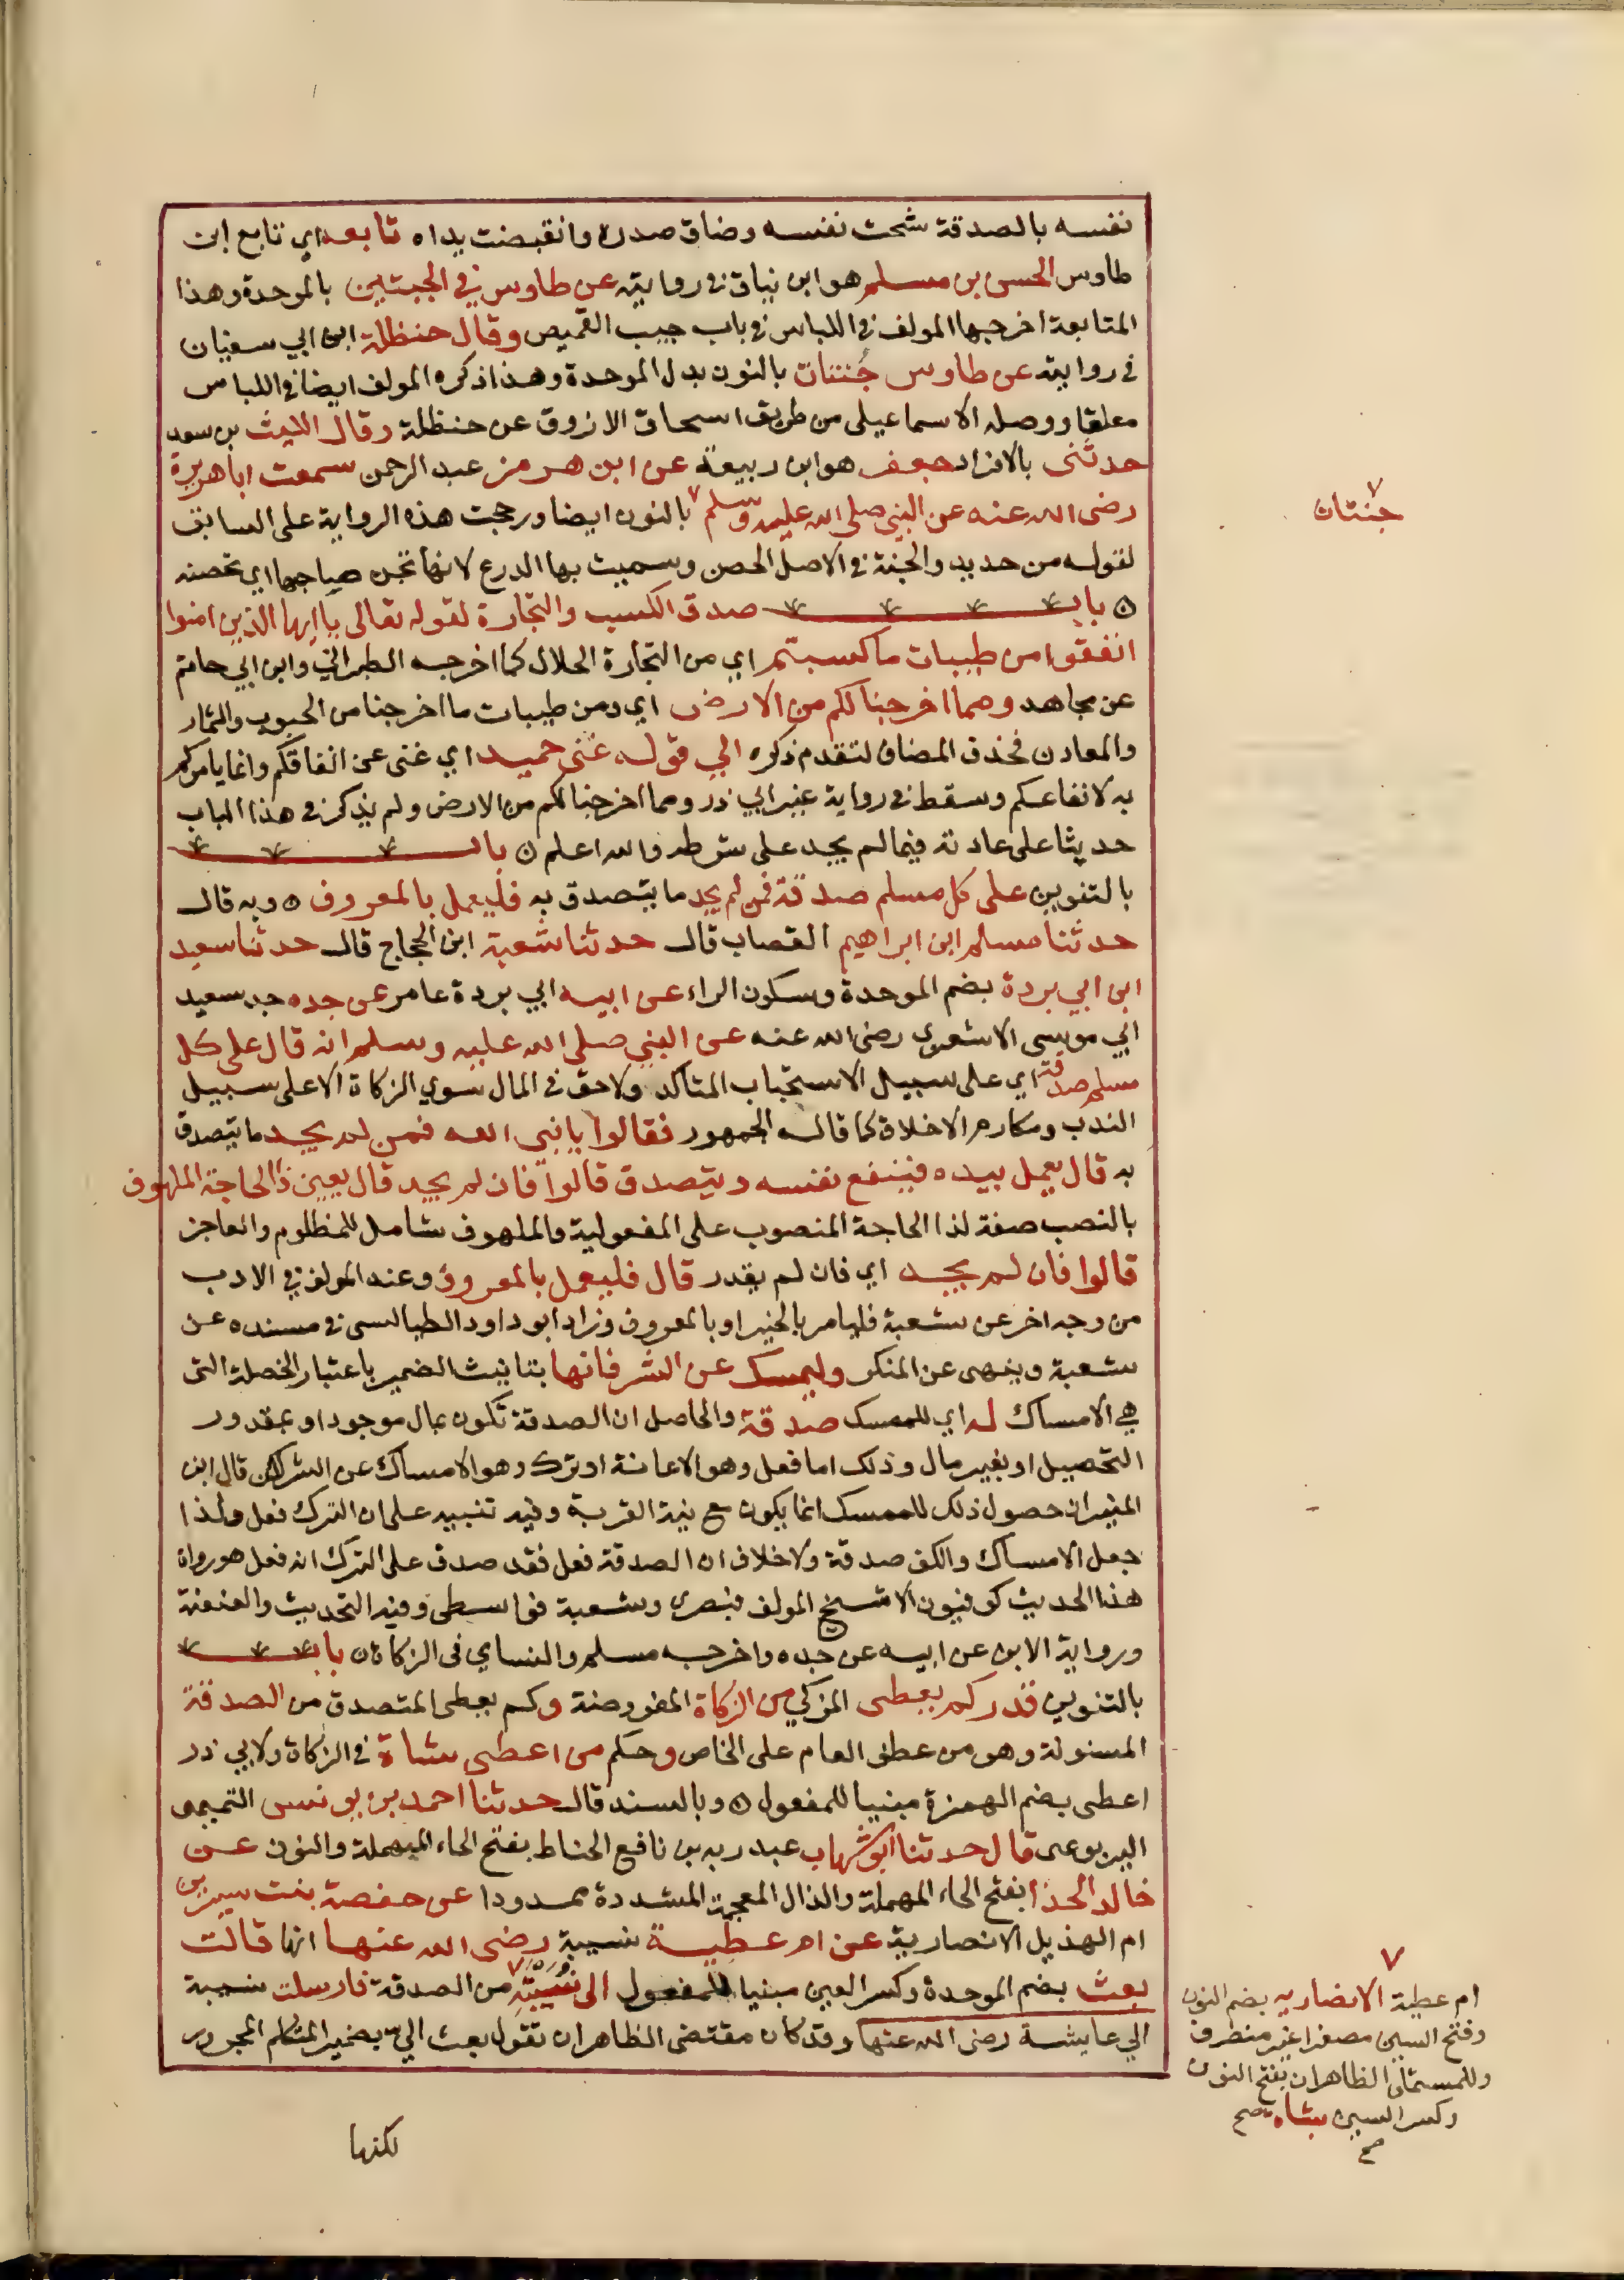 نفسه بالصدقة شحت نفسه وضاق صدره وانقبضت يداه تابعه اي تابع ابن
طاوس الحسن بن مسلم هو ابن نياق في روايته عن طاوس في الجبتين بالموحدة وهذا
المتابعة اخرجها المولف في اللباس في باب جيب القميص وقال حنظلة ابن ابي سفيان
في روايته عن طاوس جُنتان بالنون بدل الموحدة وهذا ذكره المولف ايضا في اللباس
معلقا ووصله الاسماعيلي من طريق اسحاق الازرق عن حنظلة وقال الليث بن سعد
حدثنى بالافراد جعفر هو ابن ربيعة عن ابن هرمز عبد الرحمن سمعت اباهريرة
رضى الله عنه عن النبي صلى الله عليه وسلم بالنون ايضا ورجحت هذه الرواية على السابق
جنتان
لقوله من حديد والجنة في الاصل الحصن وسميت بها الدرع لانها تجن صاحبها اي تحصنه
ه باب صدق الكسب والتجارة لقوله تعالى يا ايها الذين امنوا
انفقوا من طيبات ما كسبتم اي من التجارة الحلال كما اخرجه الطبراني وابن ابي حاتم
عن مجاهد ومما اخرجنا لكم من الارض اي ومن طيبات ما اخرجنا من الحبوب والثمار
والمعادن فحذف المضاف لتقدم ذكره الي قوله غنى حميد اي غنى عن انفاقكم وانما يامركم
به لانفاعكم وسقط في رواية غير ابي ذر ومما اخرجنا لكم من الارض ولم يذكر في هذا الباب
حديثا على عادته فيما لم يجد على شرطه والله اعلم ه باب
بالتنوين على كل مسلم صدقة فمن لم يجد ما يتصدق به فليعمل بالمعروف ه وبه قال
حدثنا مسلم ابن ابراهيم القصاب قال حدثنا شعبة ابن الحجاج قال حدثنا سعيد
ابن ابي بردة بضم الموحدة وسكون الراء عن ابيه ابي بردة عامر عن جده جد سعيد
ابي موسى الاشعري رضى الله عنه عن النبي صلى الله عليه وسلم انه قال على كل
مسلم صدقة اي على سبيل الاستحباب المتاكد ولا حق في المال سوي الزكاة الا على سبيل
الندب ومكارم الاخلاق كما قاله الجمهور فقالوا يا نبي الله فمن لم يجد ما يتصدق
به قال يعمل بيده فينفع نفسه ويتصدق قالوا فان لم يجد قال يعين ذا الحاجة الملهوف
بالنصب صفة لذا الحاجة المنصوب على المفعولية والملهوف شامل للمظلوم والعاجز
قالوا فان لم يجد اي فان لم يقدر قال فليعمل بالمعروف وعند المولف في الادب
من وجه اخر عن شعبة فليامر بالخير او بالمعروف وزاد ابو داود الطيالسى في مسنده عن
شعبة وينهى عن المنكر وليمسك عن الشر فانها بتانيث الضمير باعتبار الخصلة التى
هي الامساك له اي للممسك صدقة والحاصل ان الصدقة تكون بمال موجود او بمقدور
التحصيل او بغير مال وذلك اما فعل وهو الاعانة او ترك وهو الامساك عن الشر لكن قال ابن
المنير ان حصول ذلك للممسك انما يكون مع نية القربة وفيه تنبيه على ان الترك فعل ولذا
جعل الامساك والكف صدقة ولا خلاف ان الصدقة فعل فقد صدق على الترك انه فعل هو رواة
هذا الحديث كوفيون الا شيخ المولف فبصري وشعبة فواسطى وفيه التحديث والعنعنة
ورواية الابن عن ابيه عن جده واخرجه مسلم والنساي فى الزكاة ه باب
بالتنوين قدر كم يعطى المزكي من الزكاة المفروضة وكم يعطى المتصدق من الصدقة
المسنونة وهو من عطف العام على الخاص وحكم من اعطى شاة في الزكاة ولابي ذر
اعطى بضم الهمزة مبنيا للمفعول ه وبالسند قال حدثنا احمد بن يونس التميمى
اليربوعى قال حدثنا ابو شهاب عبد ربه بن نافع الحناط بفتح الحاء المهملة والنون عن
خالد الحذا بفتح الحاء المهملة والذال المعجمة المشددة ممدودا عن حفصة بنت سيرين
ام الهذيل الانصارية عن ام عطية نسيبة رضى الله عنها انها قالت
بعث بضم الموحدة وكسر العين مبنيا للمفعول الى نُسَيْبَةَ من الصدقة فارسلت نسيبة
الي عايشة رضى الله عنها وقد كان مقتضى الظاهر ان تقول بعث اليّ بضمير المتكلم المجرور
ام عطية الانصاريه بضم النون
وفتح السين مصغرا غير منصرف
وللمستملى الظاهر ان بفتح النون
وكسر السين بشاه صح
صح
لكنها